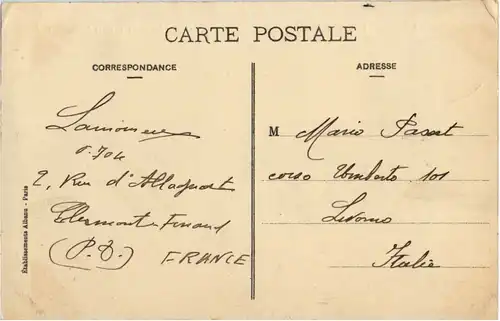 CARTE POSTALE
CORRESPONDANCE
2, Rue d'Allagnat
Clermont-Ferrand
(P.D.)
FRANCE
Établissements Albans - Paris
ADRESSE
M Mario Pasert
corso Umberto 101
Livorno
Italie